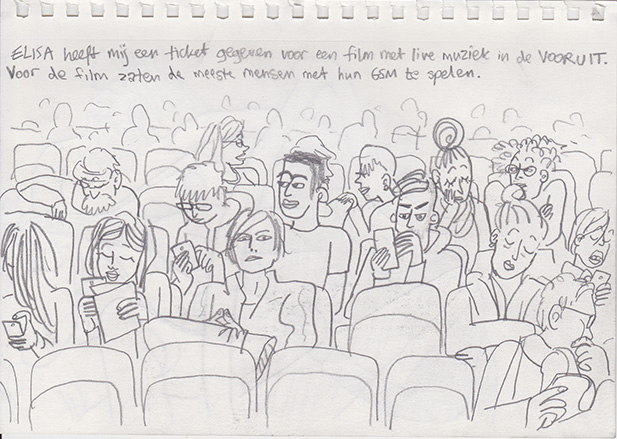 ELISA heeft mij een ticket gegeven voor een film met live muziek in de VOORUIT.
Voor de film zaten de meeste mensen met hun GSM te spelen.